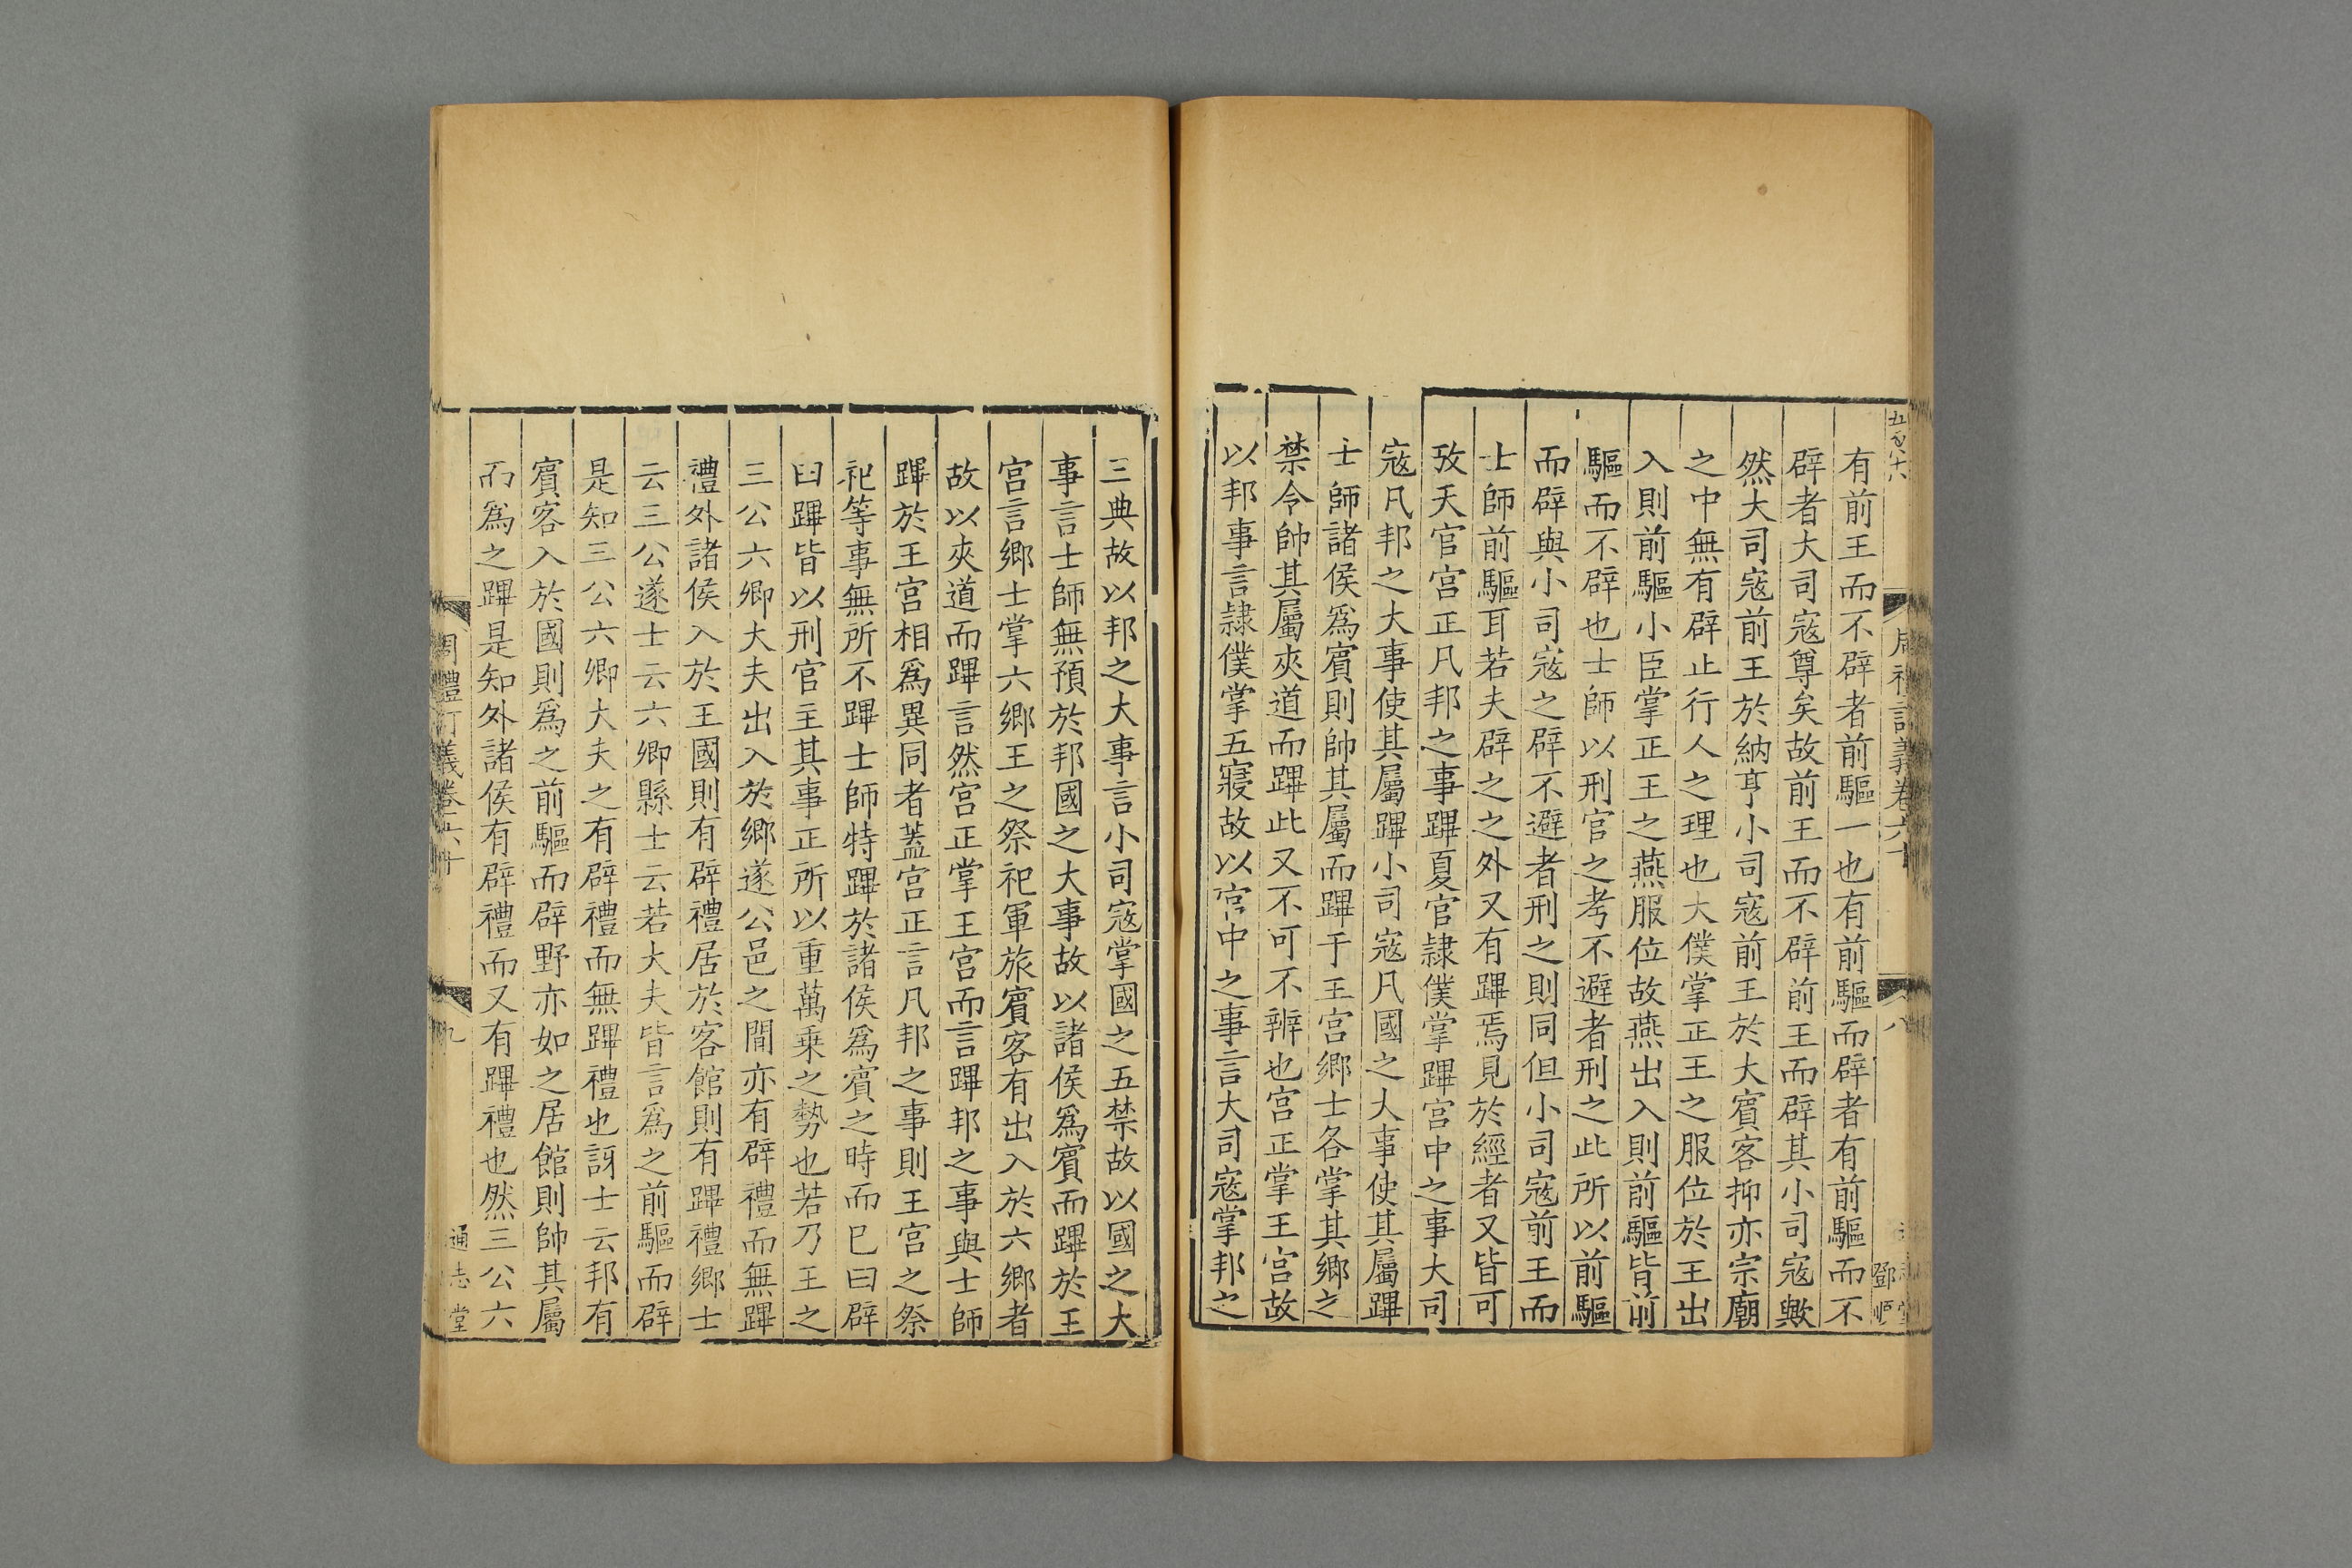 有前王而不辟者前驅一也有前驅而辟者有前驅而不
辟者大司寇尊矣故前王而不辟前王而辟其小司寇歟
然大司寇前王於納亨小司寇前王於大賓客抑亦宗廟
之中無有辟止行人之理也大僕掌正王之服位於王出
入則前驅小臣掌正王之燕服位故燕出入則前驅皆前
驅而不辟也士師以刑官之考不避者刑之此所以前驅
而辟與小司寇之辟不避者刑之則同但小司寇前王而
士師前驅耳若夫辟之之外又有蹕焉見於經者又皆可
攷天官宮正凡邦之事蹕夏官隷僕掌蹕宮中之事大司
寇凡邦之大事使其屬蹕小司寇凡國之大事使其屬蹕
士師諸侯爲賓則帥其屬而蹕于王宮鄉士各掌其鄉之
禁令帥其屬夾道而蹕此又不可不辨也宮正掌王宮故
以邦事言隷僕掌五寢故以宮中之事言大司寇掌邦之
周禮訂義卷六十
八
鄧順
三典故以邦之大事言小司寇掌國之五禁故以國之大
事言士師無預於邦國之大事故以諸侯爲賓而蹕於王
宮言鄉士掌六鄉王之祭祀軍旅賓客有出入於六鄉者
故以夾道而蹕言然宮正掌王宮而言蹕邦之事與士師
蹕於王宮相爲異同者蓋宮正言凡邦之事則王宮之祭
祀等事無所不蹕士師特蹕於諸侯爲賓之時而已曰辟
曰蹕皆以刑官主其事正所以重萬乗之勢也若乃王之
三公六卿大夫出入於鄉遂公邑之間亦有辟禮而無蹕
禮外諸侯入於王國則有辟禮居於客館則有蹕禮鄉士
云三公遂士云六卿縣士云若大夫皆言爲之前驅而辟
是知三公六卿大夫之有辟禮而無蹕禮也訝士云邦有
賓客入於國則爲之前驅而辟野亦如之居館則帥其屬
而爲之蹕是知外諸侯有辟禮而又有蹕禮也然三公六
周禮訂義卷六十
九
通志堂